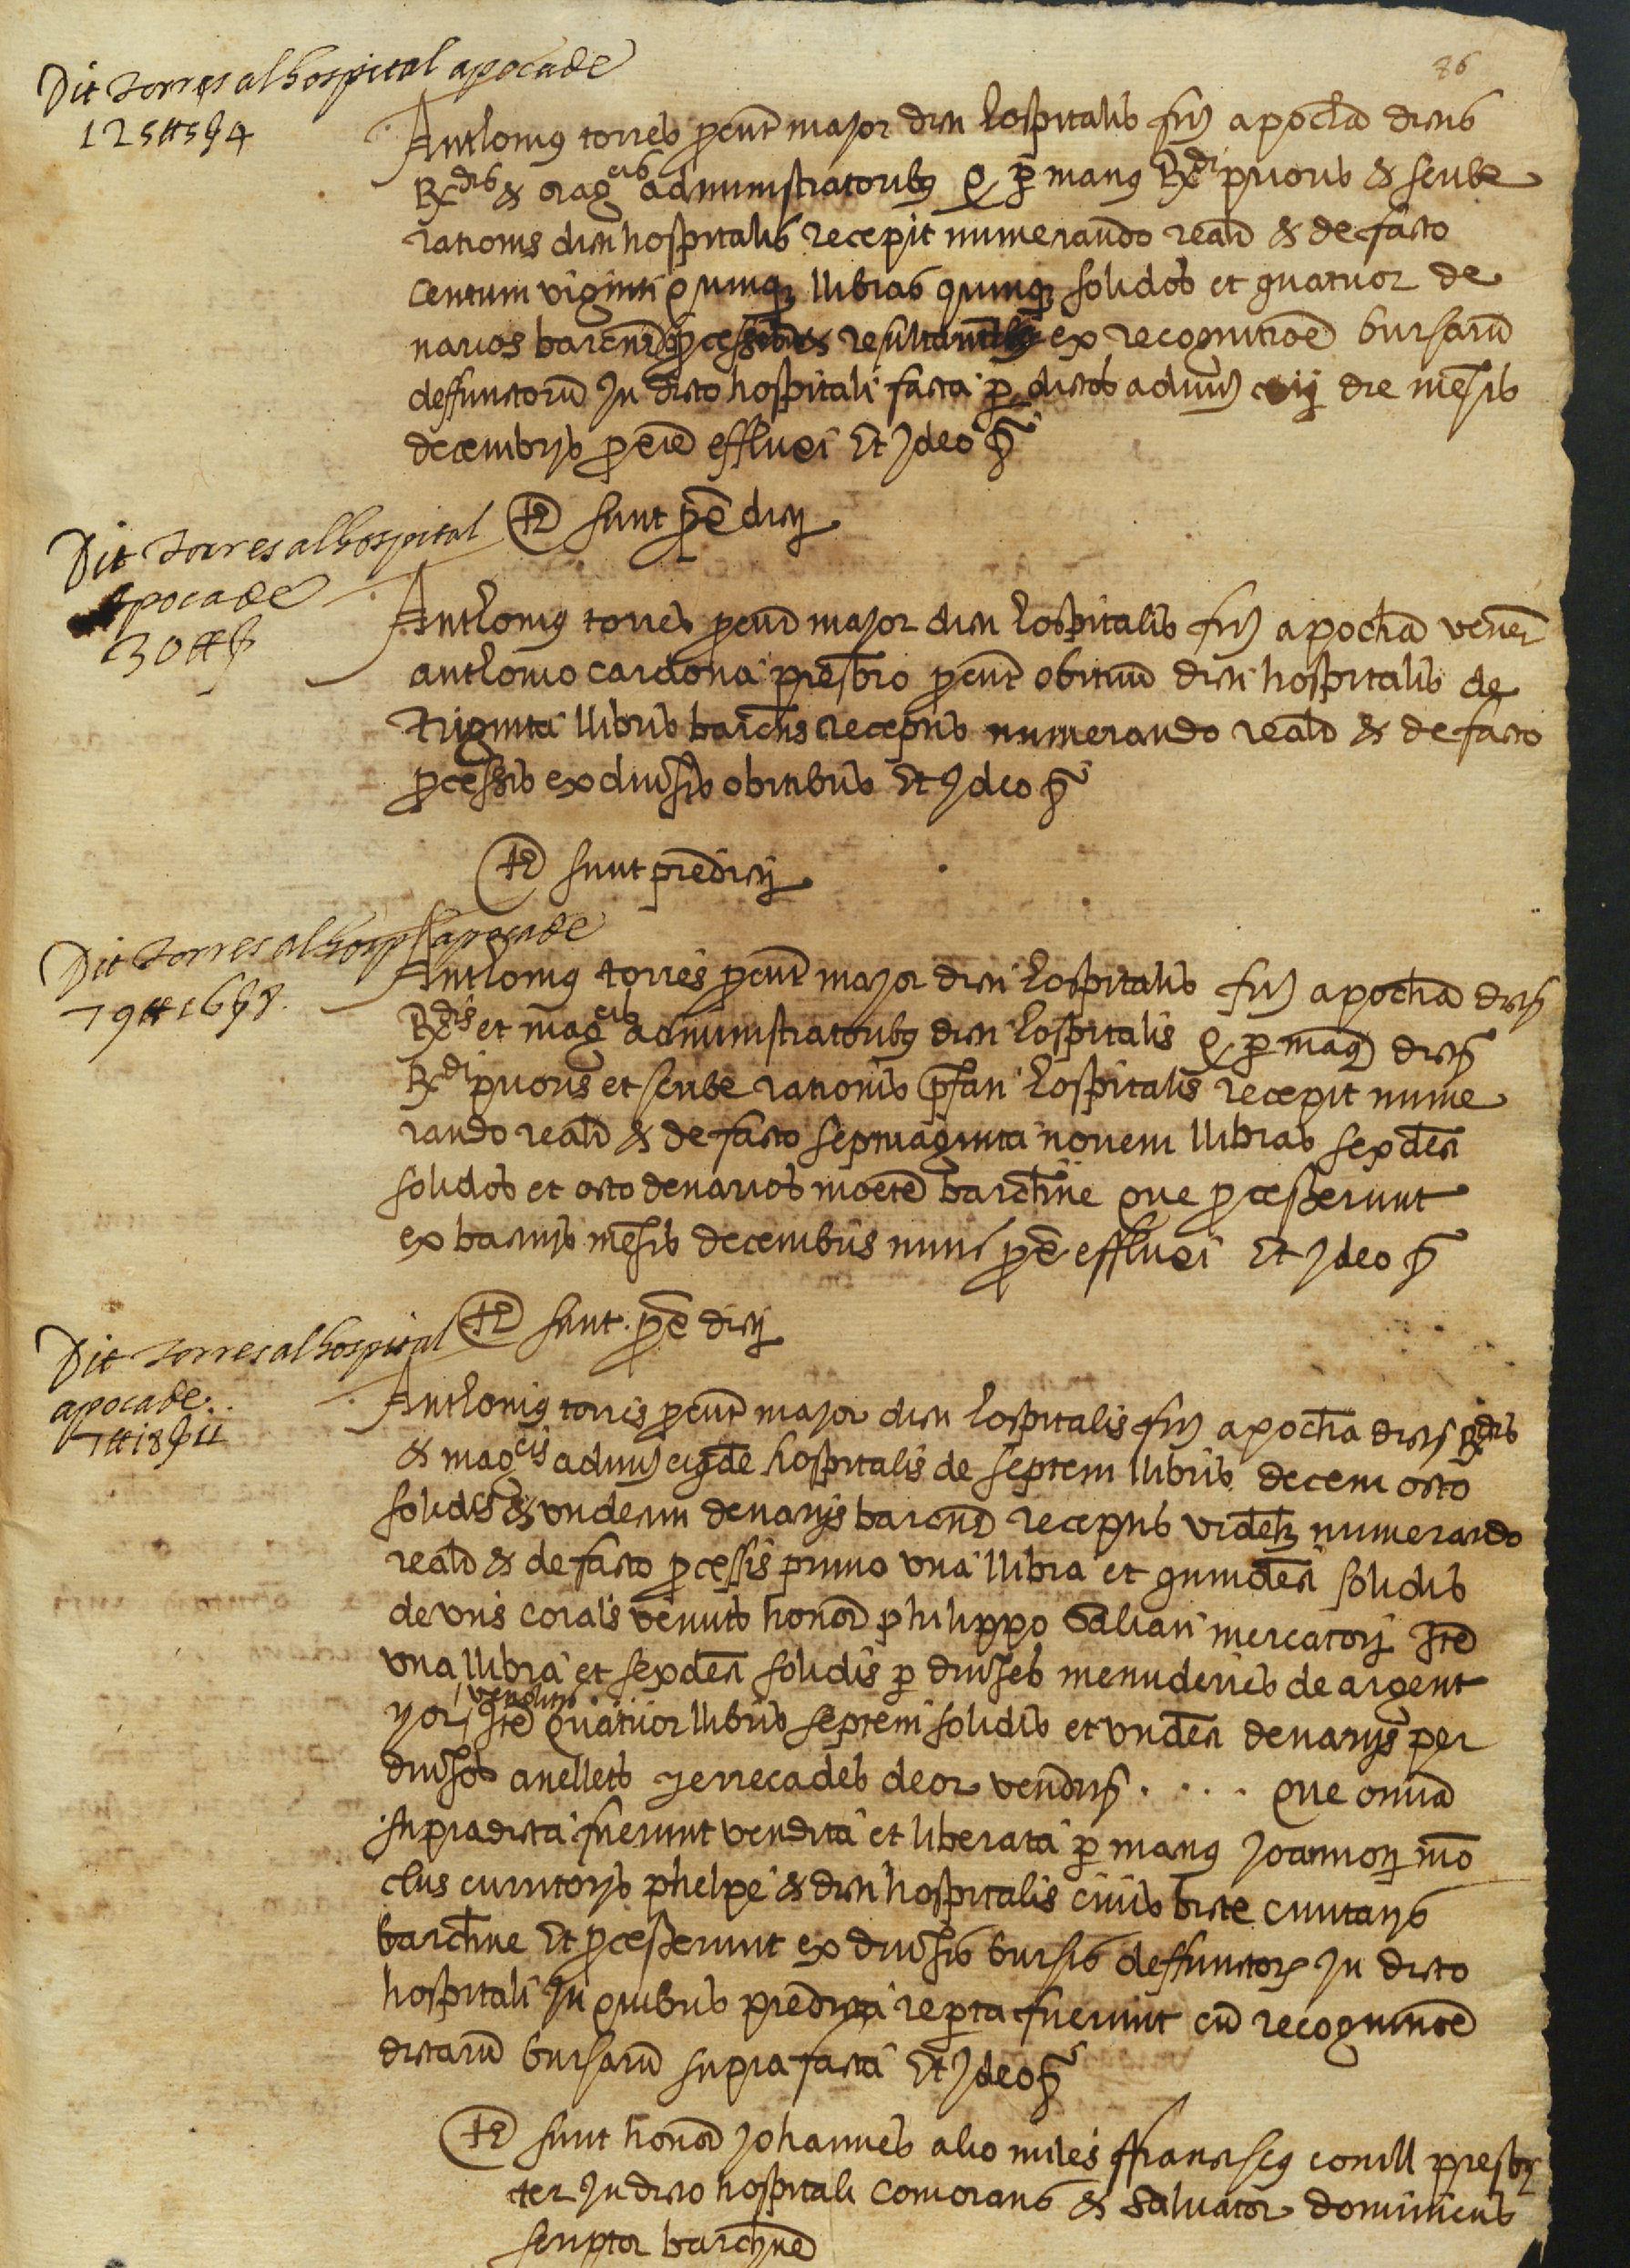 86
Dit torres al hospital apoca de
125 ll 5 s 4
Anthonius torres procur maior dicti hospitalis fir apocham dictis
Rdis & magcis administratoribus q per manus Rdi prioris & scribe
rationis dicti hospitalis recepit numerando realr & de facto
centum viginti quinque llibras quinque solidos et quatuor de
narios barcnn processibus & resultantibus ex recognitione bursarum
deffunctorum in dicto hospitali facta per dictos admin die mensis
decembris proxime effluxi Et ideo &
Testes sunt predicti
Dit torres al hospital
apoca de
30 ll s
Anthonius torres procur maior dicti hospitalis fir apocham vener
anthonio cardona presbro procur obituum dicti hospitalis de
triginta llibris barchns receptis numerando realr & de facto
processis ex diversis obitibus Et ideo &
Testes sunt predicti
Dit torres al hospital apoca de
79 ll 16 s 8
Anthonius torres procur maior dicti hospitalis fir apocham dictis
Rdis et magcis administratoribus dicti hospitalis q per manus dicti
Rdi prioris et scribe rationis prefati hospitalis recepit nume
rando realr & de facto septuaginta novem llibras sexdecim
solidos et octo denarios monete barchne que processerunt
ex bacinis mensis decembris nunc proxime effluxi Et ideo &
Testes sunt predicti
Dit torres al hospital
apoca de
7 ll 18 s 11
Anthonius torres procur maior dicti hospitalis fir apocham dictis Rdis
& magcis admin eiusdem hospitalis de septem llibris decem octo
solidis & undecim denariis barcnn receptis videlicet numerando
realr & de facto processis primo una llibra et quindecim solidis
de uns corals venuts honor philippo Galiari mercatori Item
una llibra et sexdecim solidis per diverses menuderies de argent
y or venduts Item quatuor llibris septem solidis et undecim denariis per
diversos anellets y errecades de or venditis . . . . que omnia
supradicta fuerunt vendita et liberata per manus Joannoti mo
clus curritoris phelpe & dicti hospitalis civis dicte civitatis
barchne Et processerunt ex diversis bursis deffunctorum in dicto
hospitali in quibus predicta reperta fuerunt cum recognitione
dictarum bursarum supra facta Et ideo &
Testes sunt honor Johannes alio miles ffranciscus conill presby
ter in dicto hospitali comorans & Salvator dominicus
scriptor barchne